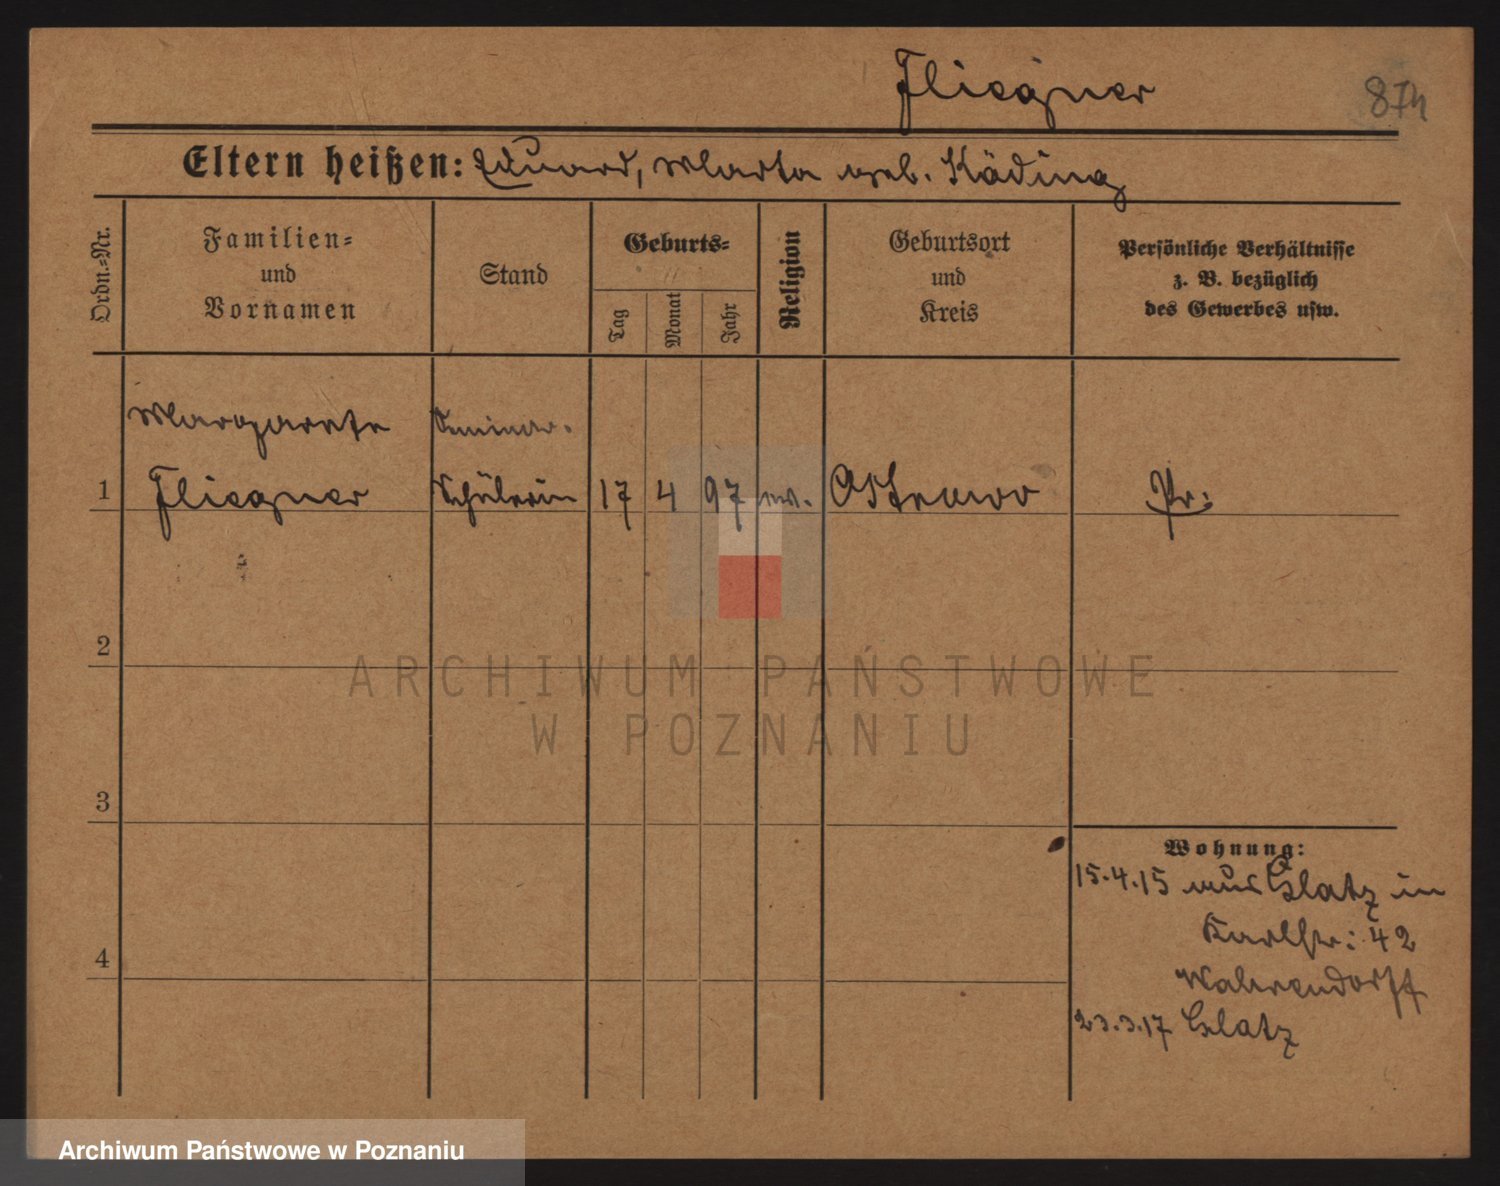 Fliegner
874
Eltern heißen: Eduard, Marta geb. Käding
Ordn.-Nr.
Familien-
und
Vornamen
Stand
Geburts-
Tag
Monat
Jahr
Religion
Geburtsort
und
Kreis
Persönliche Verhältnisse
z. B. bezüglich
des Gewerbes usw.
Margarete Seminar-
1 Fliegner Schülerin 17 4 97 ev. Ostrowo Pr:
2
ARCHIWUM PAŃSTWOWE
W POZNANIU
3
Wohnung:
15.4.15 aus Glatz in
Karlstr: 42
4
Wahrendorff
23.3.17 Glatz
Archiwum Państwowe w Poznaniu